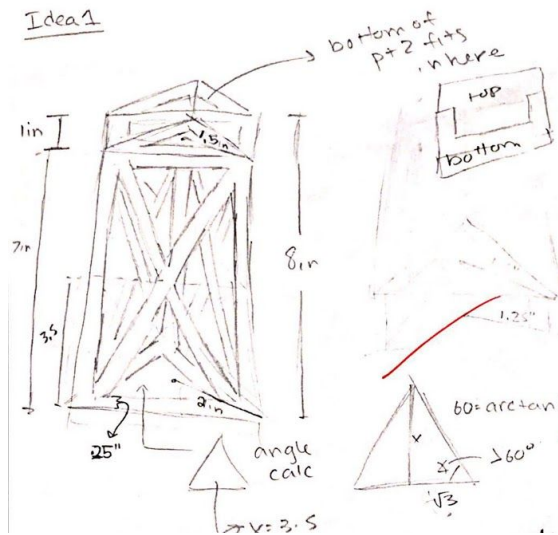 Idea 1
bottom of
pt 2 fits
in here
top
bottom
1in
1.5in
7in
8in
3.5
1.25"
2in
.25"
angle
calc
60=arctan
x
60°
√3
x=3.5